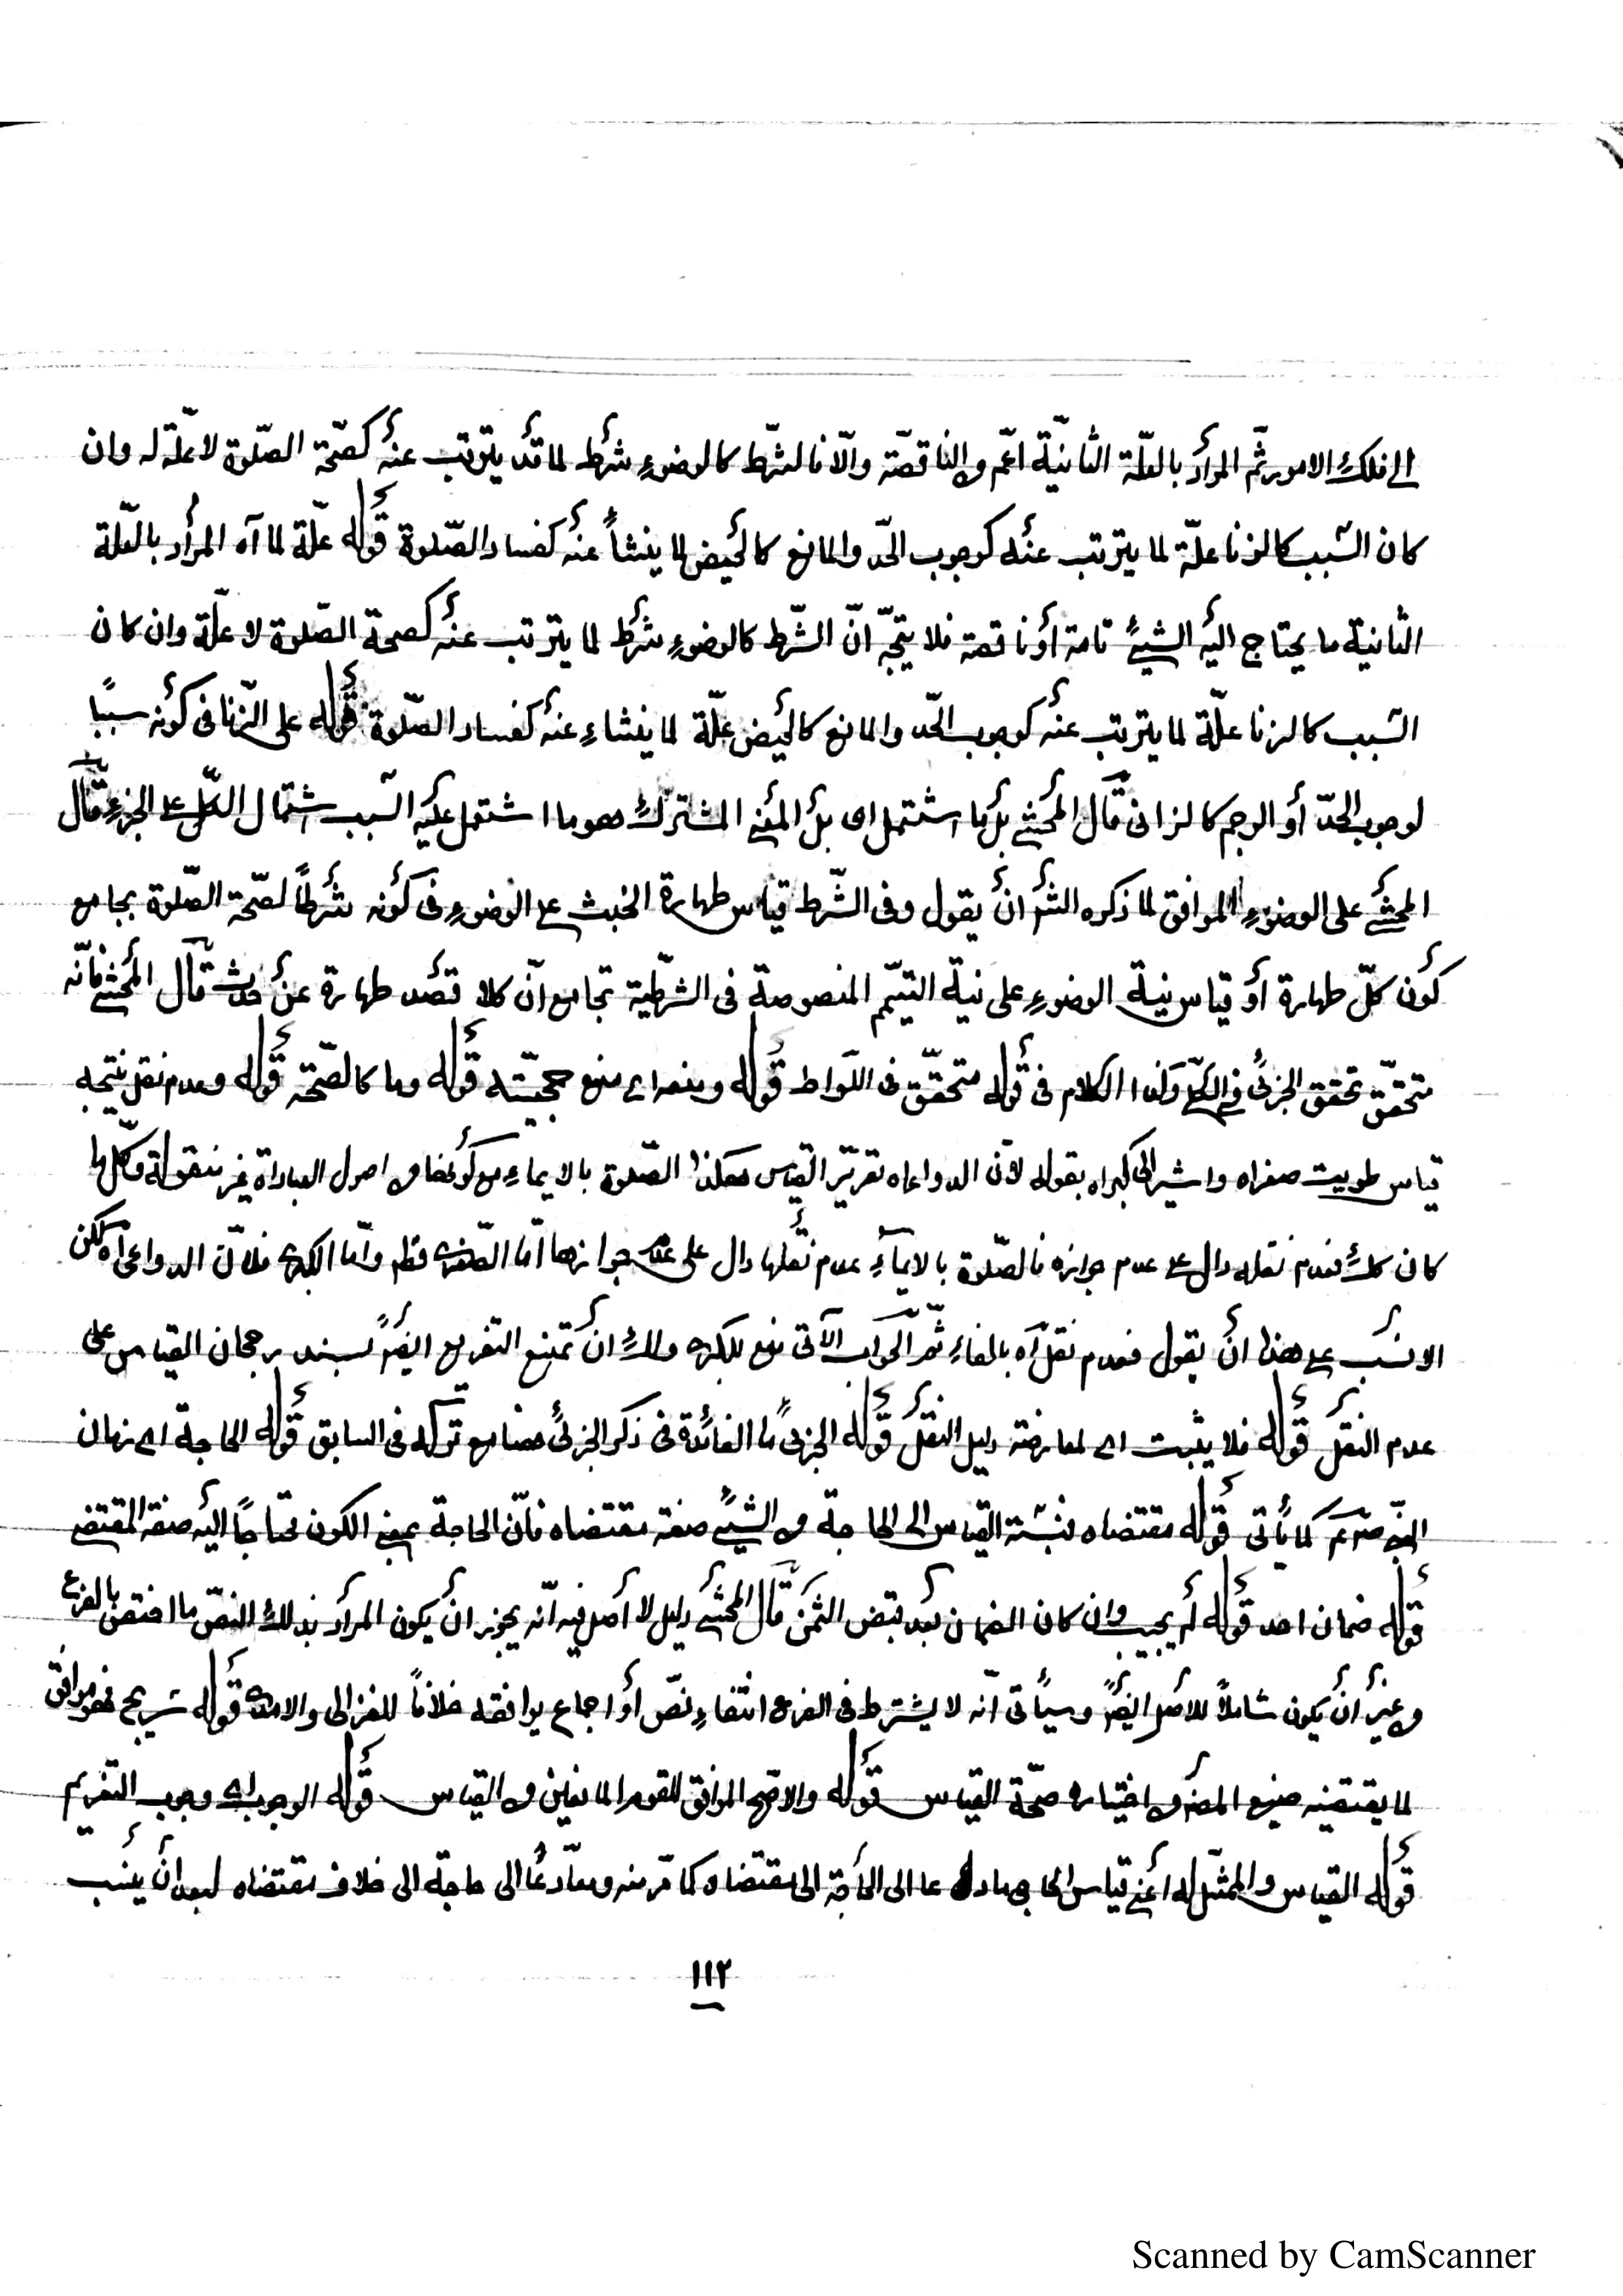 الى ذلك الامور ثمّ المرأد بالعلّة الثانيّة اعّم والناقصّة والّا فالشّرط كالوضوءِ شرْط لما قدْ يترتب عنْه كصّحة الصّلوة لا علّة له وان
كان السّبب كالزنا علّة لما يترتب عنْه كوجوب الحّد والمانع كالحيْض لما ينشأ عنْه كفساد الصّلوة قوْله علّة لما آه المرأد بالعّلة
الثانية ما يحتاج اليْه الشيئ تامة أوْ ناقصة فلا يتجّه انّ الشّرط كالوضوءِ شرْط لما يترتب عنْه كصحة الصّلوة لا علّة وان كان
السّبب كالزنا علّة لما يترتب عنْه كوجوب الحّد والمانع كالحيْض علّة لما ينشاءِ عنْه كفساد الصّلوة قوْله على الزّنا فى كوْنه سببًا
لوجوب الحدّ أو الرجم كالزانى قال المحْشى بلْ ما اشتمل اى بلْ المعْنى المشترك وهو ما اشتمل عليْه السّبب اشتمال الكلّ على الجزءِ قال
المحْشى على الوضوءِ الموافق لما ذكره الشر أنْ يقول وفى الشّرط قياس طهارة الخبث على الوضوءِ فى كوْنه شرْطاً لصّحة الصّلوة بجامع
كوْن كلّ طهارة أوْ قياس نية الوضوءِ على نية التيمّم المنصوصة فى الشرطيّة بجامع انّ كلا قصْد طهارة عنْ حدث قال المحْشى فانّه
متحقّق تحقق الجزئى فى الكلّى وكذا الكلام فى قوْله متحقّق فى اللّواط قوْله ومنع اى منع حجيّته قوْله وما كالصّحة قوْله وعدم نقل نتيجه
قياس طويت صغراه واشير الى كبراه بقوله لانّ الدواعاه تقريرْ القياس هكذا الصّلوة بالايماءِ مع كوْنها من اصول العباداة غير منقولة وكّل ما
كان كك فعدم نقله دال على عدم جوازه فالصّلوة بالايماءِ عدم نقْلها دال على عدم جوازها امّا الصّغرى فظ وامّا الكبرى فلانّ الدواعى آه لكن
الانسْب على هذا أنْ يقول فعدم نقل آه بالفاءِ ثمّ الجواب الآتى منع للكبرى ولك انْ تمْنع التفريع ايضْ بسند رجحان القياس على
عدم النقْل قوْله فلا يثبت اى لمعارضة دليل النقْل قوْله الجزئى ما الفائدة فى ذكر الجزئى هنا مع ترْكه فى السابق قوْله الحاجة اى زمان
النّبى صْ كما يأتى قوْله مقتضاه فنسْبة القياس الى الحاجة من الشيئ صفة مقتضاه فانّ الحاجة بمعنى الكون محتاجاً اليْه صفة المقتضى
قوْله ضمان احد قوْله لمْ يجب وان كان الضمان بعْد قبض الثمْن قال المحْشى دليل لا أصل فيه انّه يجوز انْ يكون المرأد بذلك النصّ ما اختص بالفرع
وغيرْ أنْ يكون شاملاً للاصْل ايضْ وسيأتى انّه لا يشترط فى الفرع انتفاءِ نصّ أوْ اجماع يوافقه خلافاً للغزالى والامدى قوْله شريح فهو موافق
لما يقتضيه صنيع المصْ من اختياره صحّة القياس قوْله والاصّح الموافق للقوم المانعين من القياس قوْله الوجوب اى وجوب التقديم
قوْله القياس والممثّل له اعْنى قياس الحاجى ما دعا الى الحاْجة الى مقتضاه كما مّر منه وما دعا الى حاجة الى خلاف مقتضاه لبعد انْ ينْسب
١١٢
Scanned by CamScanner